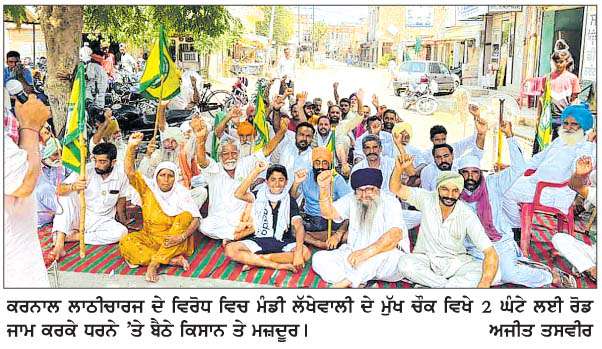 ਕਰਨਾਲ ਲਾਠੀਚਾਰਜ ਦੇ ਵਿਰੋਧ ਵਿਚ ਮੰਡੀ ਲੱਖੇਵਾਲੀ ਦੇ ਮੁੱਖ ਚੌਕ ਵਿਖੇ 2 ਘੰਟੇ ਲਈ ਰੋਡ
ਜਾਮ ਕਰਕੇ ਧਰਨੇ ’ਤੇ ਬੈਠੇ ਕਿਸਾਨ ਤੇ ਮਜ਼ਦੂਰ। ਅਜੀਤ ਤਸਵੀਰ